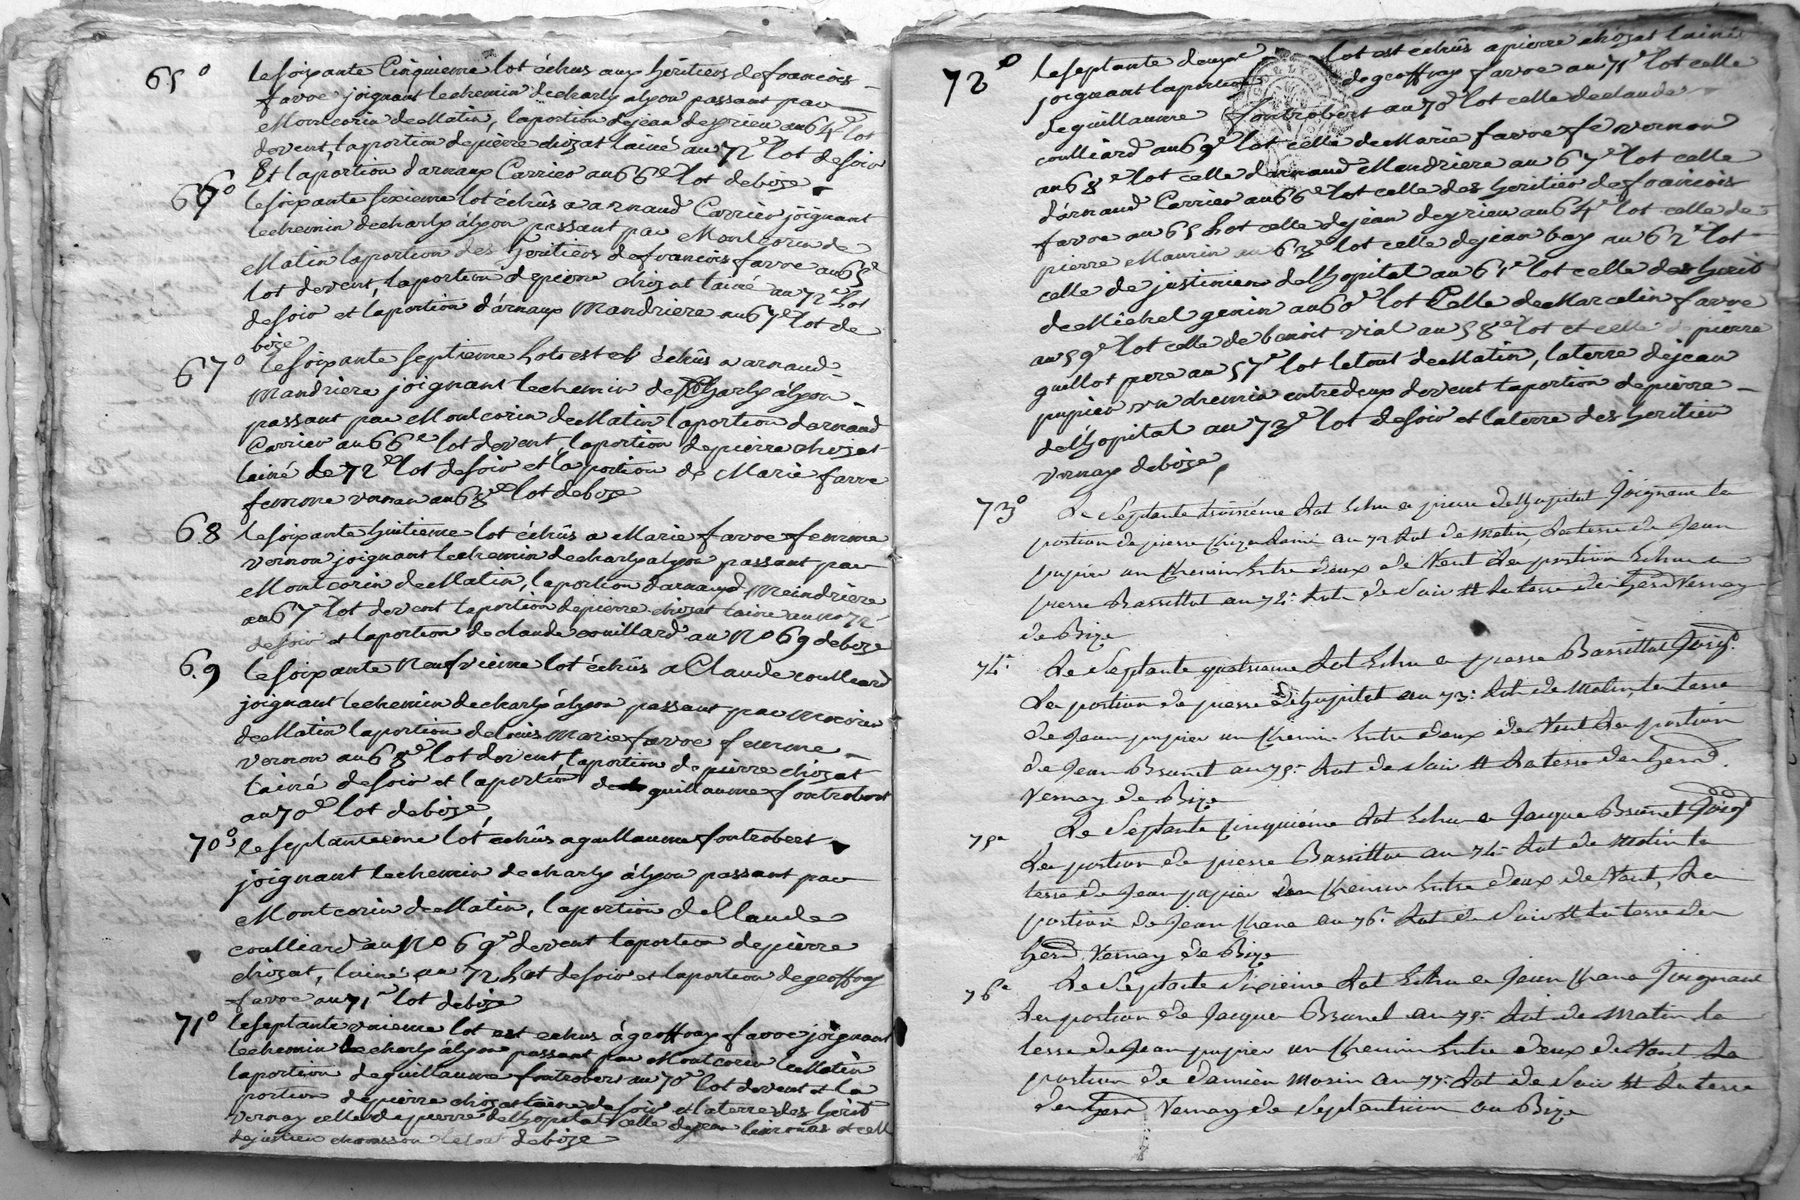 65° le soixante Cinquieme lot échus aux héritiers de francois
favre joignant le chemin de charly a lyon passant par
Montcorin de Matin, la portion de jean deyrieu au 64e lot
de vent, la portion de pierre chozat lainé au 72e lot de soir
Et la portion d'arnaux Carrier au 66e lot de bize
66° le soixante sixieme lot échûs a arnaud Carrier joignant
le chemin de charly a lyon passant par Montcorin de
Matin la portion des heritiers de francois favre au 65e
lot de vent, la portion de pierre chozat lainé au 72e lot
de soir et la portion d'arnaux Mandriere au 67e lot de
bize
67° le soixante septieme lots est échûs a arnaud
Mandriere joignant le chemin de Charly a lyon
passant par Montcorin de Matin la portion d'arnaud
Carrier au 66e lot de vent, la portion de pierre chozat
lainé de 72e lot de soir et la portion de Marie favre
femme vernon au 68e lot de bize
68 le soixante huitieme lot échûs a Marie favre femme
vernon joignant le chemin de charly a lyon passant par
Montcorin de Matin, la portion d'arnaud Meindriere
au 67e lot de vent la portion de pierre chozat lainé au no 72
de soir et la portion de claude couillard au No 69 de bize
69 le soixante Neufvieme lot échûs a Claude coulliard
joignant le chemin de charly a lyon passant par Mocorin
de Matin la portion de Marie favre femme
vernon au 68e lot de vent, la portion de pierre chozat
lainé de soir et la portion de guillaume fontrobert
au 70e lot de bize,
70° le septantieme lot echûs a guillaume fontrobert
joignant le chemin de charly a lyon passant par
Montcorin de Matin, la portion de Claude
coulliard au No 69e de vent la portion de pierre
chozat, lainé au 72 lot de soir et la portion de geoffroy
favre au 71e lot de bize
71° le septante unieme lot est echus à geoffroy favre joignant
le chemin de charly a lyon passant par Montcorin de Matin
la portion de guillaume fontrobert au 70e lot de vent et la
portion de pierre chozat lainé de soir et la terre des herit
vernay celle de pierre delhopital celle de jean et cell
de justin le tout de bize
72° le septante deuxe lot est échûs a pierre chozat lainé
joignant la portion de geoffroy favre au 71e lot celle
de guillaume fontrobert au 70e lot celle de claude
coulliard au 69e lot celle de Marie favre fe vernon
au 68e lot celle d'arnaud Mandriere au 67e lot celle
d'arnaud Carrier au 66e lot celle des heritier de francois
favre au 65 lot celle de jean deyrieu au 64e lot celle de
pierre Maurin au 63e lot celle de jean bay au 62e lot
celle de justinien delhopital au 61e lot celle des herit
de Michel genin au 60e lot Celle de Marcelin favre
au 59e lot celle de benoit vial au 58e lot et celle de pierre
guillot pere au 57e lot le tout de Matin, la terre de jean
pupier un chemin entre deux de vent la portion de pierre
delhopital au 73e lot de soir et la terre des heritier
vernay de bize,
73° Le Septante troisiéme Lot Echu a pierre delhopital Joignant la
portion de pierre Chiza Lainé au 72 Lot de Matin, La terre de Jean
pupier un Chemin Entre deux de Vent La portion Echu a
pierre Bassillat au 74e Lot de Soir Et La terre des herd Vernay
de Bize
74e Le Septante quatrieme Lot Echu a pierre Bassillat Joigt
La portion de pierre Delhopital au 73e Lot de Matin, la terre
de Jean pupier un Chemin Entre deux de Vent La portion
de Jean Brunet au 75e Lot de Soir Et La terre des herd
Vernay de Bize
75e Le Septante Cinquiéme Lot Echu a Jacque Brunet Joigt
La portion de pierre Bassillat au 74e Lot de Matin la
terre de Jean pupier Chemin Entre deux de Vent, La
portion de Jean Chane au 76e Lot de Soir Et La terre des
herd Vernay de Bize
76e Le Septante Sixiéme Lot Echu a Jean Chane Joignant
La portion de Jacque Brunet au 75e Lot de Matin la
terre de Jean pupier un Chemin Entre deux de Vent La
portion de Damien Morin au 77e Lot de Soir Et La terre
des herd Vernay de Septantrion ou Bize